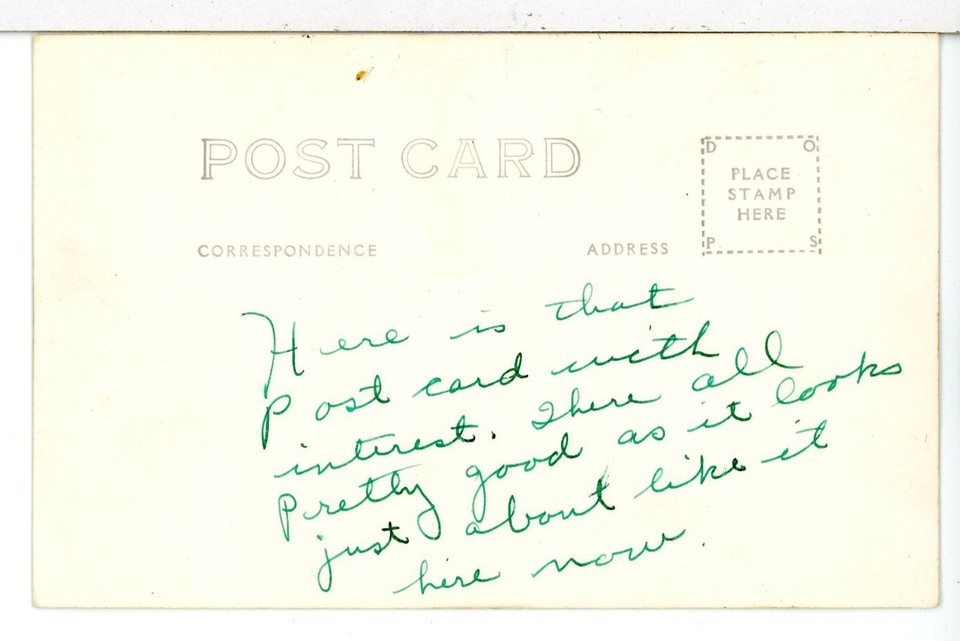 POST CARD
D O
PLACE
STAMP
HERE
P S
CORRESPONDENCE
ADDRESS
Here is that
Post card with
interest. There all
Pretty good as it looks
just about like it
here now.